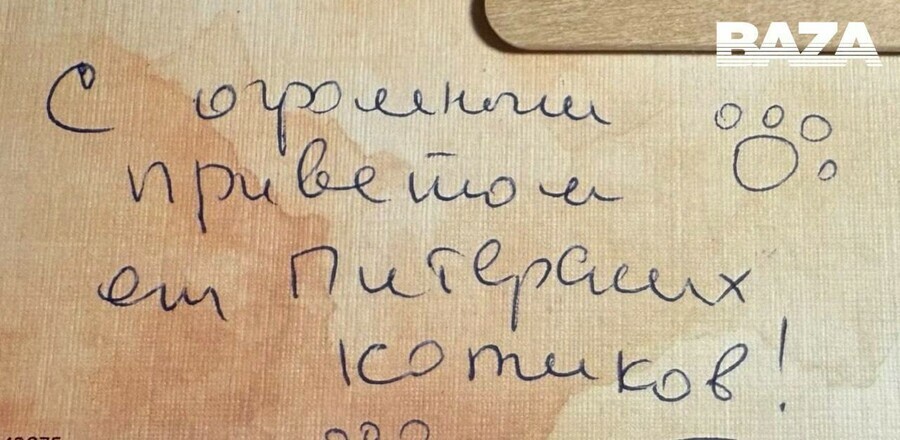 BAZA
С огромным
приветом
от Питерских
котиков!